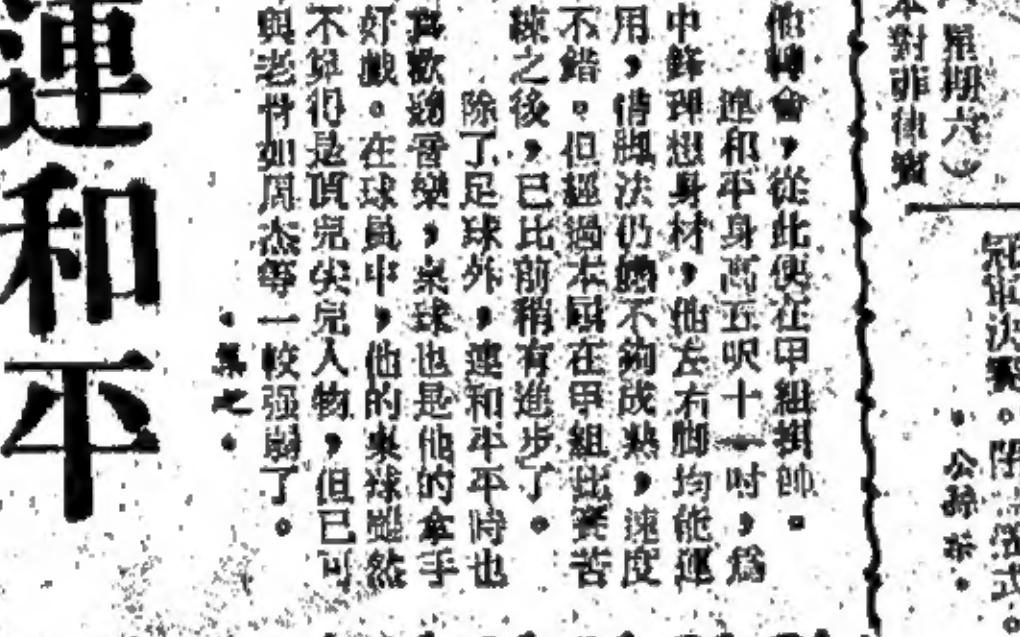 星期六）
本對菲律賓
冠軍決賽。閉幕儀式。
。公孫
他轉會，從此便在甲組掛帥。
連和平身高五呎十一吋，爲
中鋒理想身材，他左右脚均能運
用，惜脚法仍嫌不夠成熟，速度
不錯。但經過本屆在甲組比賽苦
練之後，已比前稍有進步了。
除了足球外，連和平平時也
喜歡聽音樂，桌球也是他的拿手
好戲。在球員中，他的桌球雖然
不算得是頂兒尖兒人物，但已可
與老將如周杰等一較强弱了。
連和平